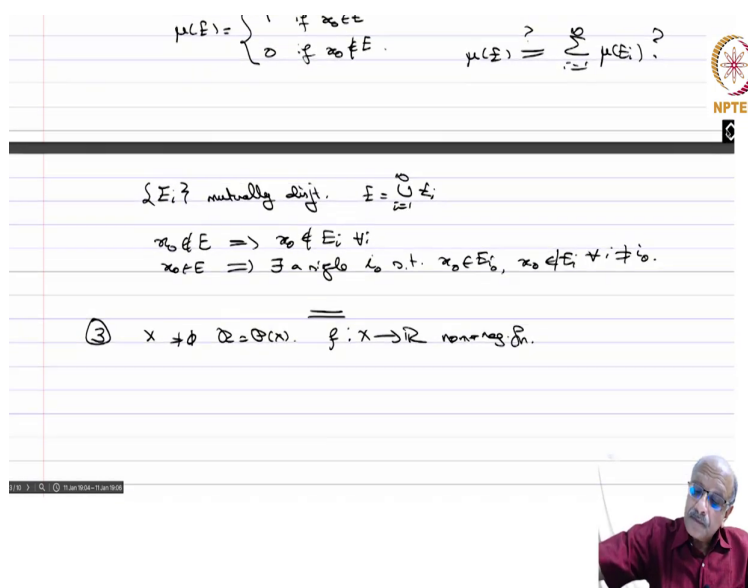 μ(E) = { 1 if x₀∈E
0 if x₀∉E.
μ(E) ?= ∑_{i=1}^{∞} μ(E_i)?
NPTE
{E_i} mutually disjt. E = ∪_{i=1}^{∞} E_i
x₀∉E => x₀∉E_i ∀i
x₀∈E => ∃ a single i₀ s.t. x₀∈E_{i₀}, x₀∉E_i ∀ i≠i₀.
③ X ≠ ∅ R = P(X). f: X→ℝ non-neg. fn.
/10 11 Jan 19:04 – 11 Jan 19:06